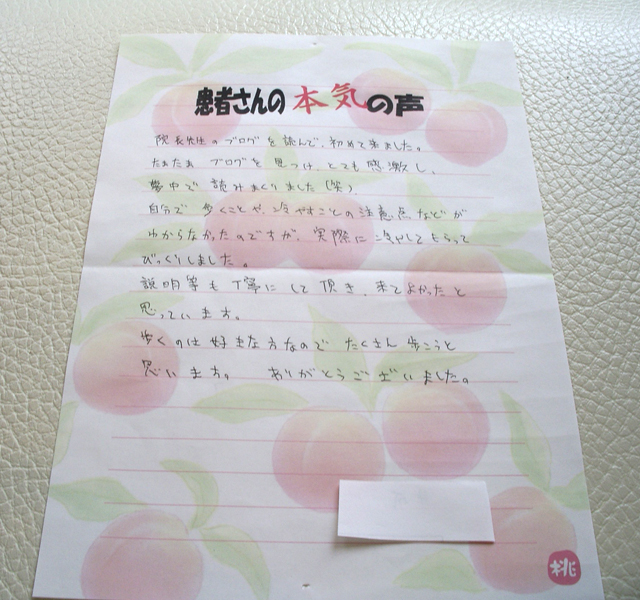 患者さんの本気の声
院長先生のブログを読んで、初めて来ました。
たまたま ブログを見つけ、とても感激し、
夢中で読みまくりました(笑)
自分で歩くことや、冷やすことの注意点などが
わからなかったのですが、実際に冷やしてもらって
びっくりしました。
説明等も丁寧にして頂き、来てよかったと
思っています。
歩くのは好きな方なので たくさん歩こうと
思います。 ありがとうございました。
桃